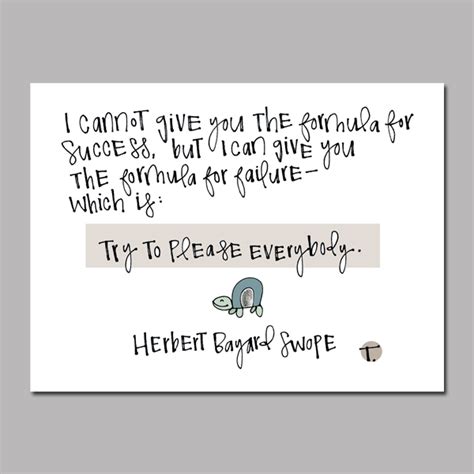 I cannot give you the formula for
success, but I can give you
the formula for failure—
which is:
Try to please everybody.
Herbert Bayard Swope
T.